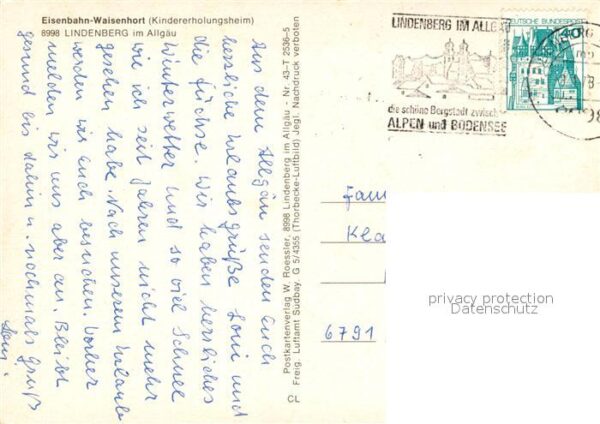 Eisenbahn-Waisenhort (Kindererholungsheim)
8998 LINDENBERG im Allgäu
Aus dem Allgäu senden Euch
herzliche Urlaubsgrüße Loni und
die Füchse Wir haben herrliches
Winterwetter und so viel Schnee
wie ich seit Jahren nicht mehr
gesehen habe. Nach unserem Urlaub
werden wir Euch besuchen. Vorher
melden wir uns aber an. Bleibt
gesund bis dahin u. nochmals Gruß
Loni
Postkartenverlag W. Roessler, 8998 Lindenberg im Allgäu - Nr. 43-T 2536-5
Freig. Luftamt Südbay. G 5/4355 (Thorbecke-Luftbild) Jegl. Nachdruck verboten
CL
LINDENBERG IM ALLG
die schöne Bergstadt zwisch
ALPEN und BODENSEE
DEUTSCHE BUNDESPOST
40
Fam
Kla
6791
privacy protection
Datenschutz